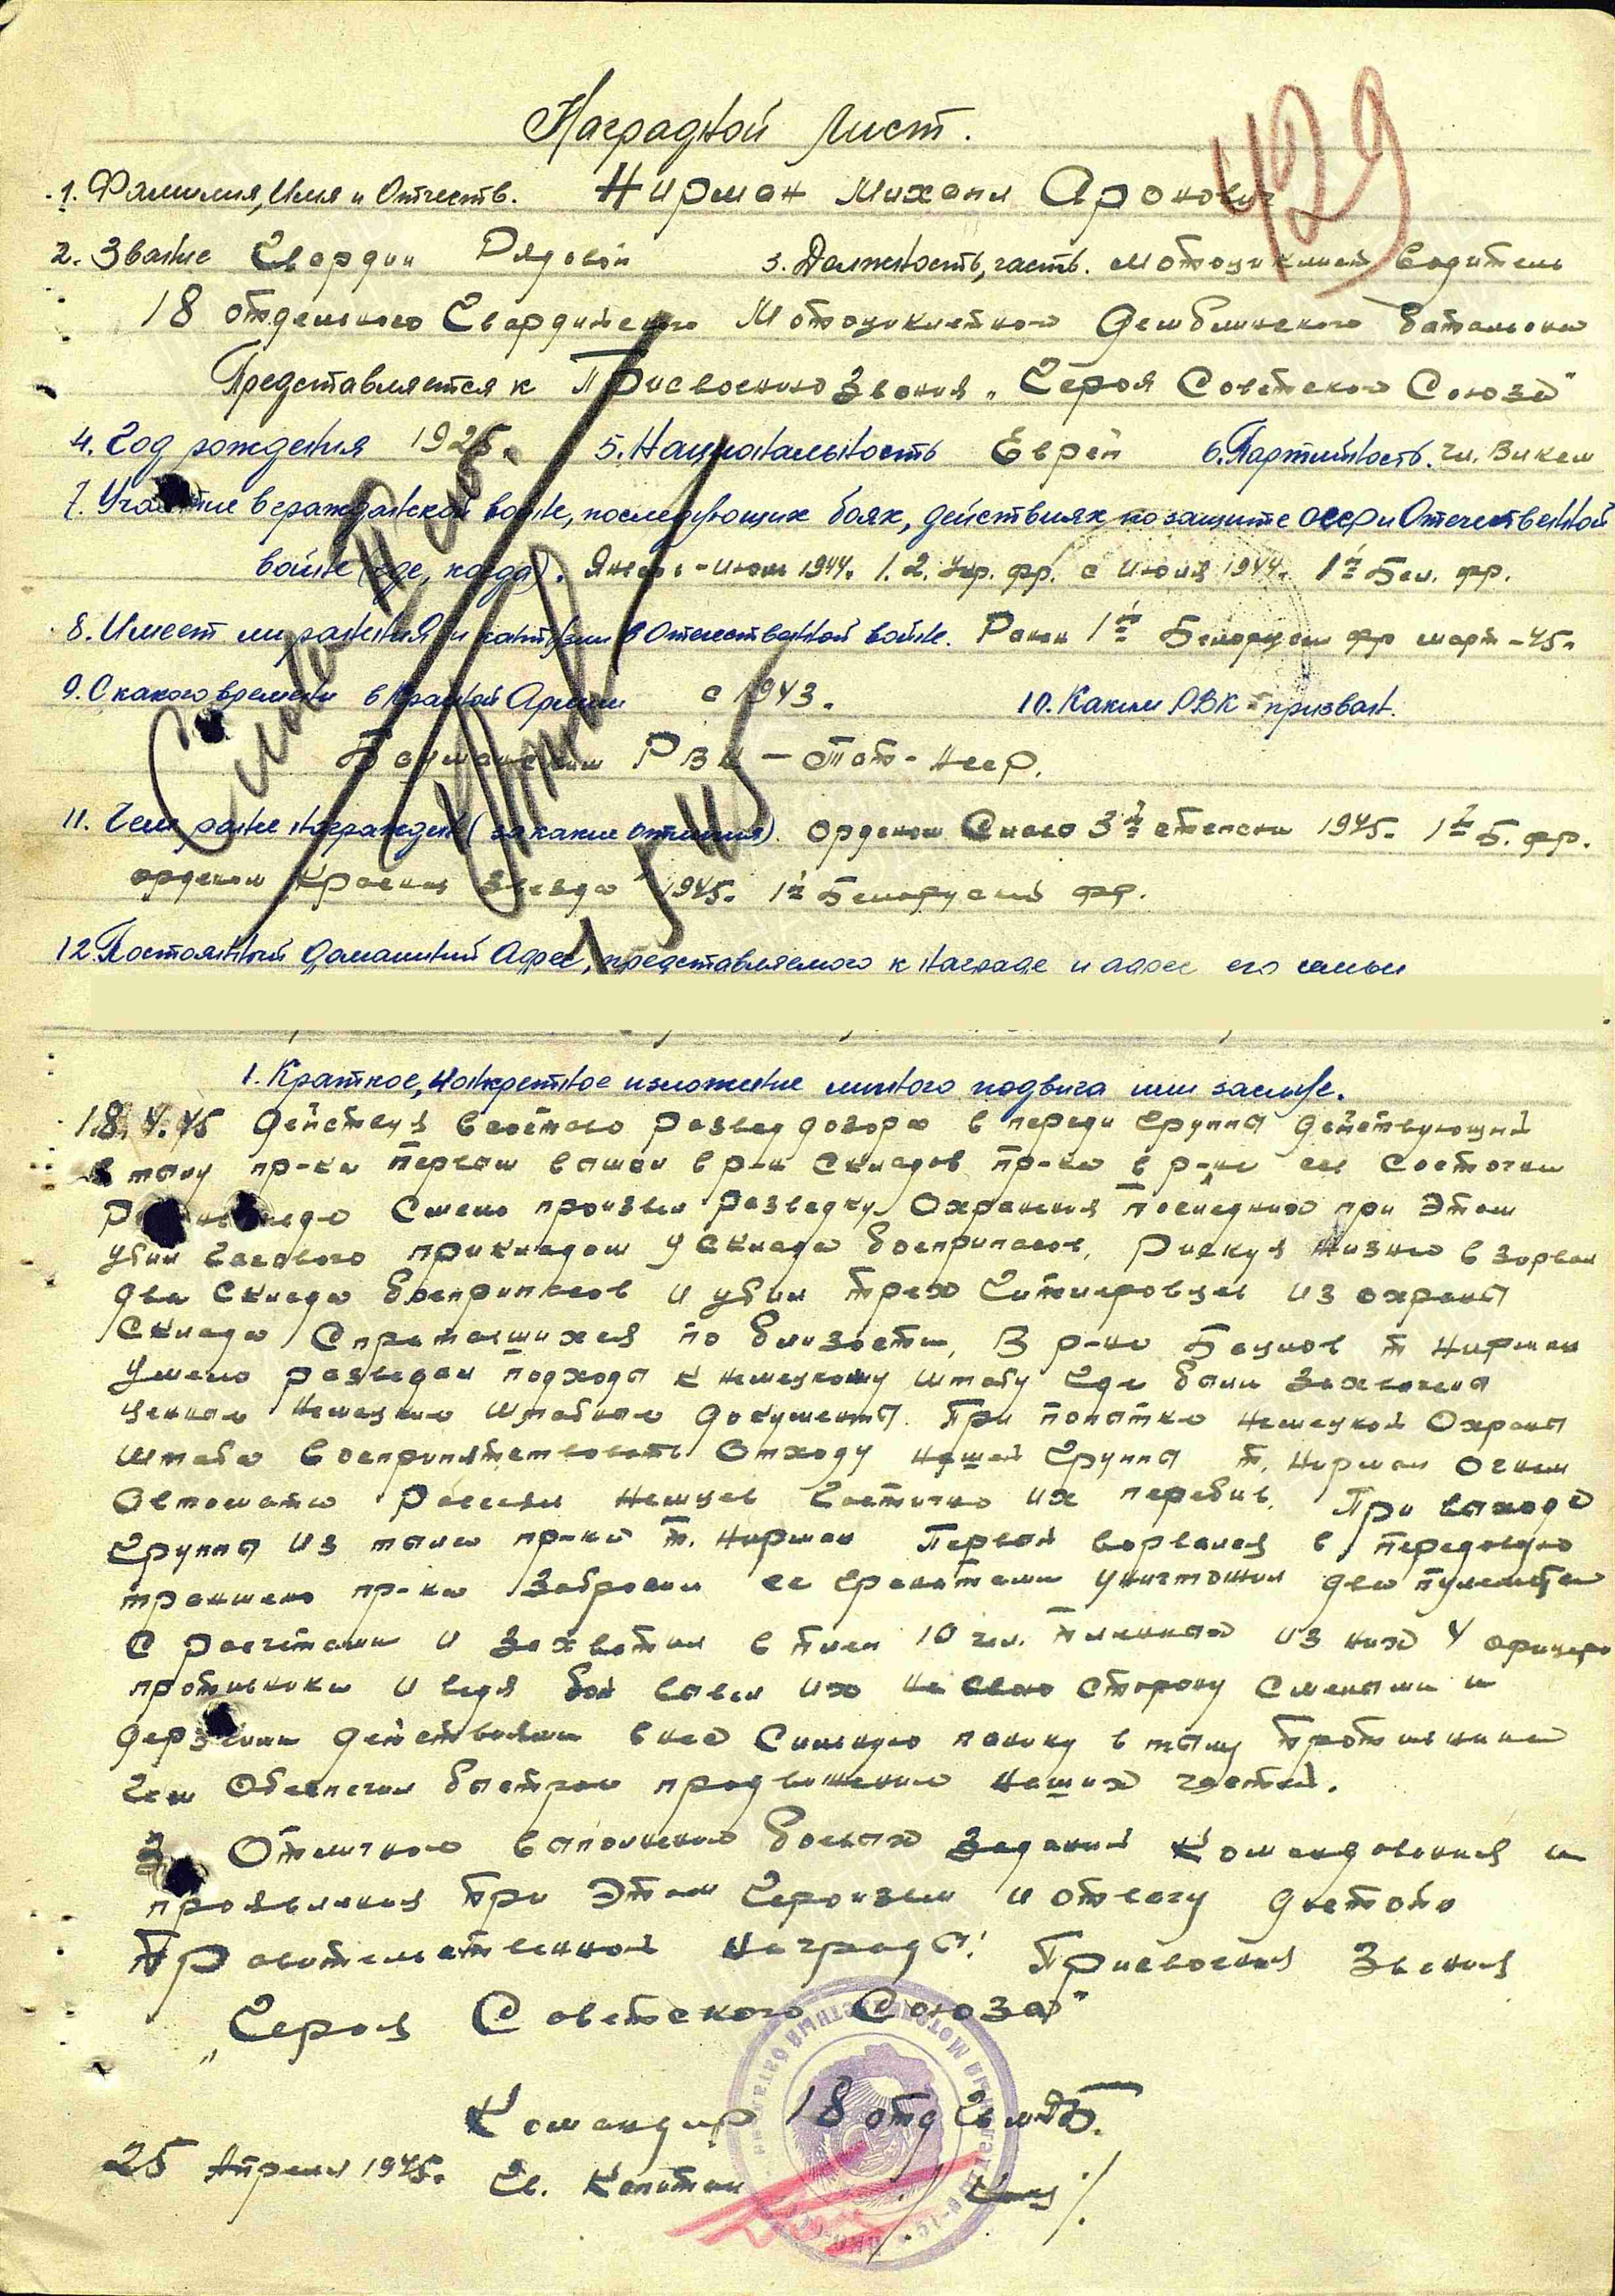 Наградной лист.
429
1. Фамилия, Имя и Отчеств. Нирман Михаил Аронович
2. Звание Гвардии Рядовой 3. Должность, часть. мотоциклист водитель
18 отдельного Гвардейского Мотоциклетного Демблинского батальона
Представляется к Присвоению Звания „Героя Советского Союза"
4. Год рождения 1925. 5. Национальность Еврей 6. Партийность. чл. ВЛКСМ
7. Участие в гражданской войне, последующих боях, действиях по защите СССР и Отечественной
войне (где, когда). 1944. 1. 2. Укр. фр. с июня 1944. 1й Бел. фр.
8. Имеет ли ранения и контузии в Отечественной войне. Ранен 1й Белорусск фр март-45.
9. С какого времени в Красной Армии с 1943. 10. Каким РВК призван.
Бауманским РВК - Тат-
11. Чем ранее награжден (за какие отличия). орденом Славы 3й степени 1945. 1й Б. фр.
орденом Красная звезда 1945. 1й Белоруский фр.
12. Постоянный Домашний Адрес, представляемого к награде и адрес его семьи
1. Краткое, конкретное изложение личного подвига или заслуг.
18.4.45 Действуя в составе развед дозора в переди Группы действующей
в тылу пр-ка Первым вышел в р-н складов пр-ка в р-не
Смело произвел разведку Охранения последнего при Этом
убил часового прикладом у склада боеприпасов, Рискуя жизнью взорвал
два склада боеприпасов и убил трех Гитлеровцев из охраны
Склада Спратавшихся по близости. В р-не Бауцов т Нирман
умело разведал подходы к немецкому штабу Где были Захвачены
ценные Немецкие Штабные документы. При попытке немецкой Охраны
штаба воспрепятствовать Отходу нашей Группы т. Нирман Огнем
Автомата Рассеял немцев частично их перебив. При выходе
Группы из тыла пр-ка т. Нирман Первый ворвался в передовую
траншею пр-ка Забросал ее гранатами уничтожил два пулемета
с расчетами и захватил в плен 10 чел. Пленных из них 4 офицера
противника и ведя бой вывел их на свою сторону Смелыми и
дерзкими действиями внес Сильную панику в тылу Противника
чем Обеспечил быстрое продвижение наших частей.
За Отличное выполнение боевых Заданий Командования и
проявленная При Этом Героизм и отвагу достоин
Правительственной награды: Присвоения Звания
„Героя Советского Союза"
Командир 18 отд Гв МЦБ.
25 Апреля 1945. Гв. Капитан